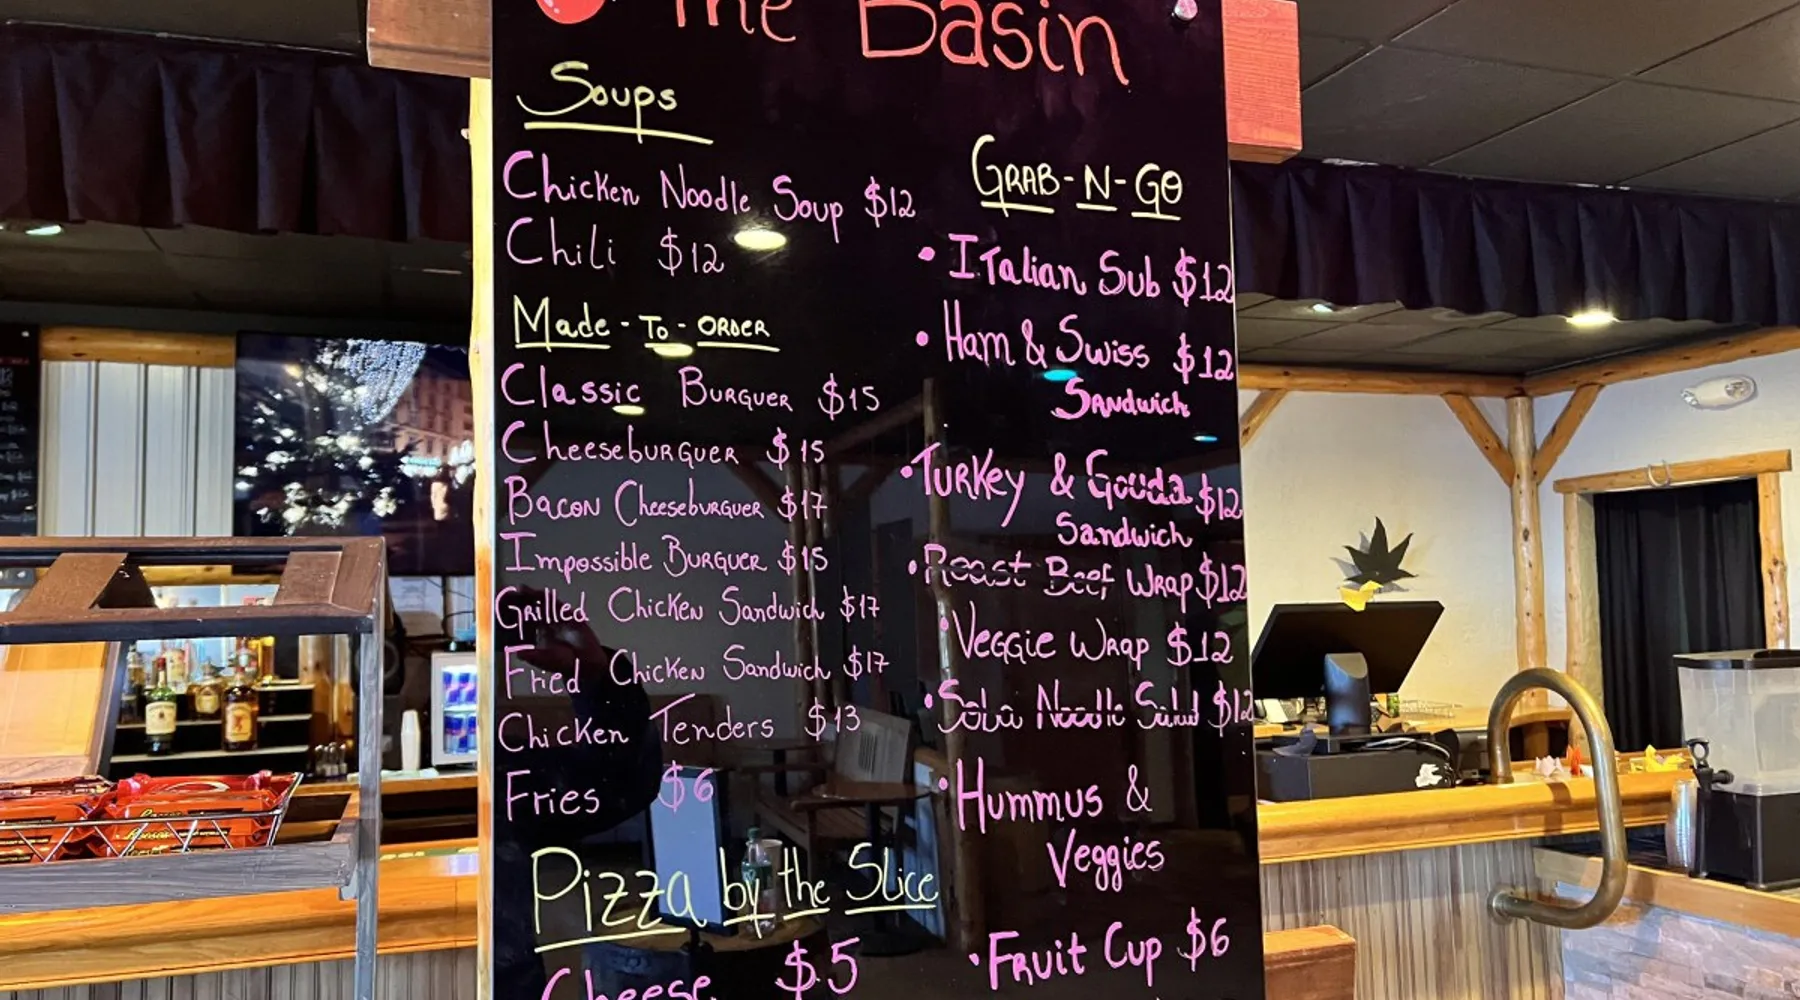 The Basin
Soups
Chicken Noodle Soup $12
Chili $12
Made-To-Order
Classic Burguer $15
Cheeseburguer $15
Bacon Cheeseburguer $17
Impossible Burguer $15
Grilled Chicken Sandwich $17
Fried Chicken Sandwich $17
Chicken Tenders $13
Fries $6
Pizza by the Slice
Cheese $5
Grab-N-Go
• Italian Sub $12
• Ham & Swiss $12
Sandwich
• Turkey & Gouda $12
Sandwich
• Roast Beef Wrap $12
• Veggie Wrap $12
• Soba Noodle Salad $12
• Hummus &
Veggies
• Fruit Cup $6
Reese's